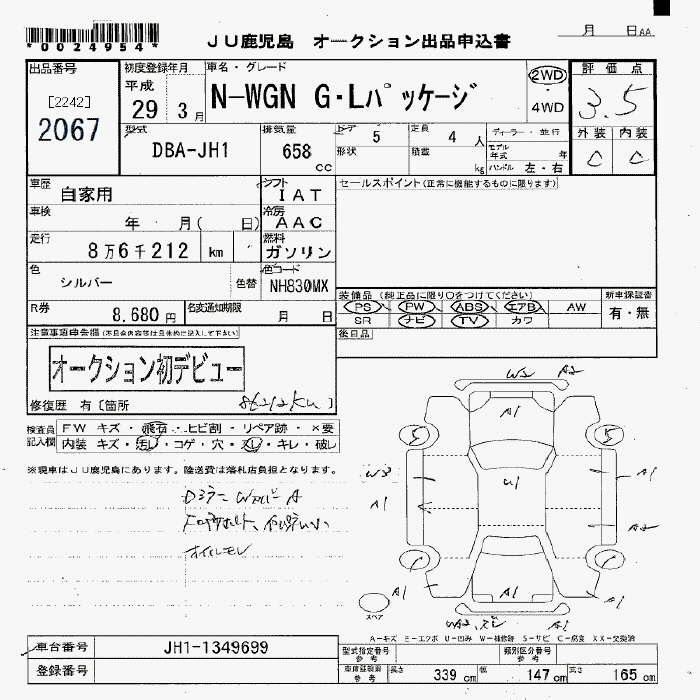 *0024954*
JU鹿児島 オークション出品申込書
月 日AA
出品番号
[2242]
2067
初度登録年月
平成
29 3月
車名・グレード
N-WGN G・Lパッケージ
2WD
・
4WD
評価点
3.5
外装 内装
C C
型式
DBA-JH1
排気量
658
cc
ドア 5
形状
定員 4 人
積載 kg
ディーラー・並行
モデル年式 年
ハンドル 左・右
車歴
自家用
シフト
IAT
車検
年・月( 日)
冷房
AAC
走行
8万6千212 km
燃料
ガソリン
色
シルバー
色替
色コード
NH830MX
R券
8,680円
名変通知期限
月 日
セールスポイント(正常に機能するものに限ります)
装備品(純正品に限り○をつけてください)
PS PW ABS エアB AW
SR ナビ TV カワ
新車保証書
有・無
後日品
注意事項申告欄
オークション初デビュー
修復歴 有〔箇所
86212km 〕
検査員記入欄
FW キズ・飛石・ヒビ割・リペア跡・×要
内装 キズ・汚レ・コゲ・穴・スレ・キレ・破レ
※現車はJU鹿児島にあります。陸送費は落札店負担となります。
オイルモレ
W2 A2
A1
W3
U1
A1
A1
A2
A1
A1
A1
スペア
A-キズ E-エクボ U-凹み W-補修跡 S-サビ C-腐食 XX-交換済
車台番号
JH1-1349699
登録番号
型式指定番号
参考
類別区分番号
参考
長さ 339 cm
幅 147 cm
高さ 165 cm